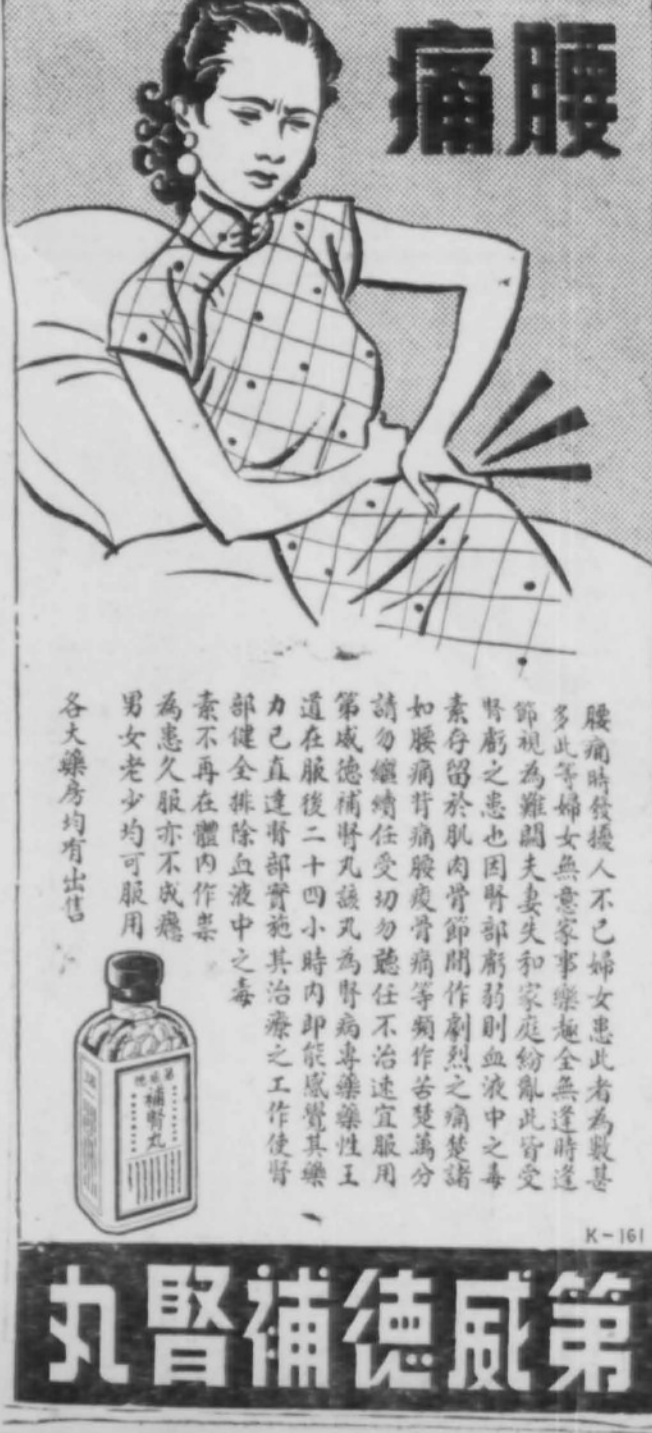 腰痛
腰痛時發擾人不已婦女患此者為數甚
多此等婦女無意家事樂趣全無逢時逢
節視為難關夫妻失和家庭紛亂此皆受
腎虧之患也因腎部虧弱則血液中之毒
素存留於肌肉骨節間作劇烈之痛楚諸
如腰痛背痛腰痠骨痛等頻作苦楚萬分
請勿繼續任受切勿聽任不治速宜服用
第威德補腎丸該丸為腎病專藥藥性王
道在服後二十四小時內即能感覺其藥
力已直達腎部實施其治療之工作使腎
部健全排除血液中之毒
素不再在體內作祟
為患久服亦不成癮
男女老少均可服用
各大藥房均有出售
第威德
補腎丸
K-161
第威德補腎丸